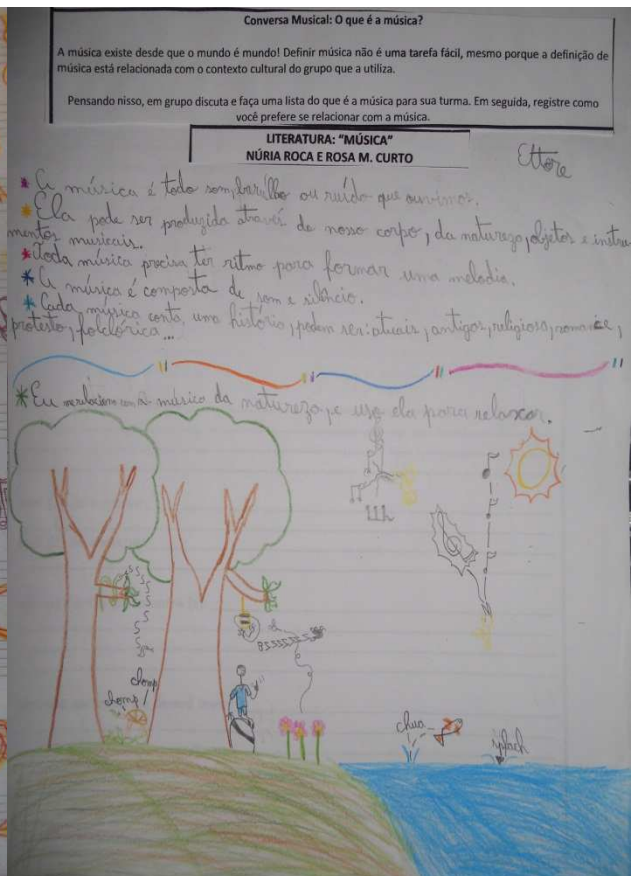 Conversa Musical: O que é a música?
A música existe desde que o mundo é mundo! Definir música não é uma tarefa fácil, mesmo porque a definição de
música está relacionada com o contexto cultural do grupo que a utiliza.
Pensando nisso, em grupo discuta e faça uma lista do que é a música para sua turma. Em seguida, registre como
você prefere se relacionar com a música.
LITERATURA: “MÚSICA”
NÚRIA ROCA E ROSA M. CURTO
Ettore
* A música é todo som, barulho ou ruído que ouvimos.
* Ela pode ser produzida através do nosso corpo, da natureza, objetos e instru-
mentos musicais.
* Toda música precisa ter ritmo para formar uma melodia.
* A música é composta de som e silêncio.
* Cada música conta uma história, podem ser: atuais, antigas, religiosa, romance,
protesto, folclórica...
* Eu me relaciono com a música da natureza, e uso ela para relaxar.
chomp
chomp
chua
splach